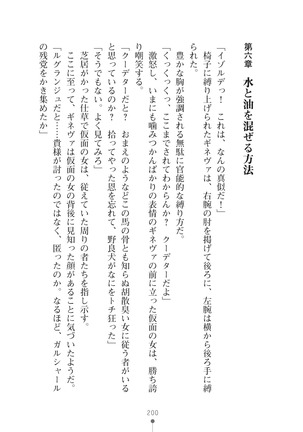 第六章　水と油を混ぜる方法
「イゾルデっ！　これは、なんの真似だ！」
椅子に縛り上げられたギネヴァは、右腕の肘を掲げて後ろに、左腕は横から後ろ手に縛
豊かな胸が強調される無駄に官能的な縛り方だ。
「くっくっくっ、ここまでされてわからんか？　クーデターだよ」
激怒し、いまにも噛みつかんばかりの表情のギネヴァの前に立った仮面の女は、勝ち誇
り嘲笑する。
「クーデターだと？　おまえのようなどこの馬の骨とも知らぬ胡散臭い女に従う者がいる
と思っているのか？　拾ってやった恩を忘れて、野良犬がなにをトチ狂った」
「そうでもない。よく見てみろ」
芝居がかった仕草で仮面の女は、従えていた周りの者たちを指し示す。
ここに至って、ギネヴァは仮面の女の背後に見知った顔があることに気づいたようだ。
「ルグランジュだと……貴様が討ったのではなく、匿ったのか。なるほど、ガルシャール
の残党をかき集めたか」
200